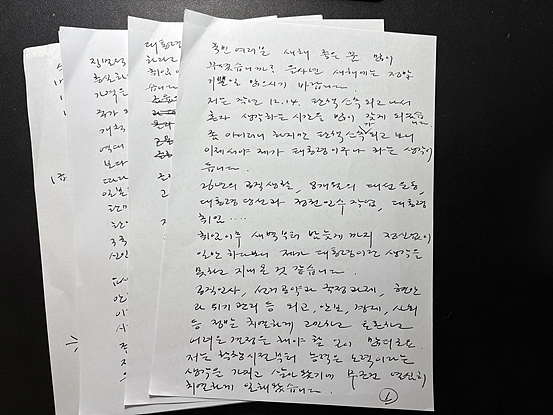 국민 여러분 새해 좋은 꿈 많이
꾸셨습니까? 을사년 새해에는 정말
기쁜 일 많으시기 바랍니다
저는 작년 12.14. 탄핵소추되고 나서
혼자 생각하는 시간을 많이 갖게 되었습니다
좀 아이러니하지만 탄핵소추가 되고 보니
이제서야 제가 대통령이구나 하는 생각이
듭니다.
26년의 공직생활, 8개월의 대선 운동,
대통령 당선과 정권 인수 작업, 대통령
취임....
취임 이후 새벽부터 밤늦게까지 정신없이
일만 하다보니 제가 대통령이란 생각을
못하고 지내온 것 같습니다.
공직인사, 선거공약과 국정과제, 현안
과 위기관리 등 외교, 안보, 경제, 사회
등 정책을 치열하게 고민하고 토론하고
어려운 결정을 해야 할 일이 많더군요.
저는 학창시절부터 능력은 노력이라는
생각을 가지고 살아왔기에 무조건 열심히
치열하게 일해왔습니다.
①
대통령